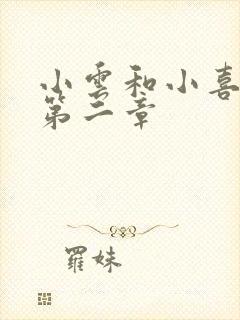 小雲和小喜
第二章
羅妹